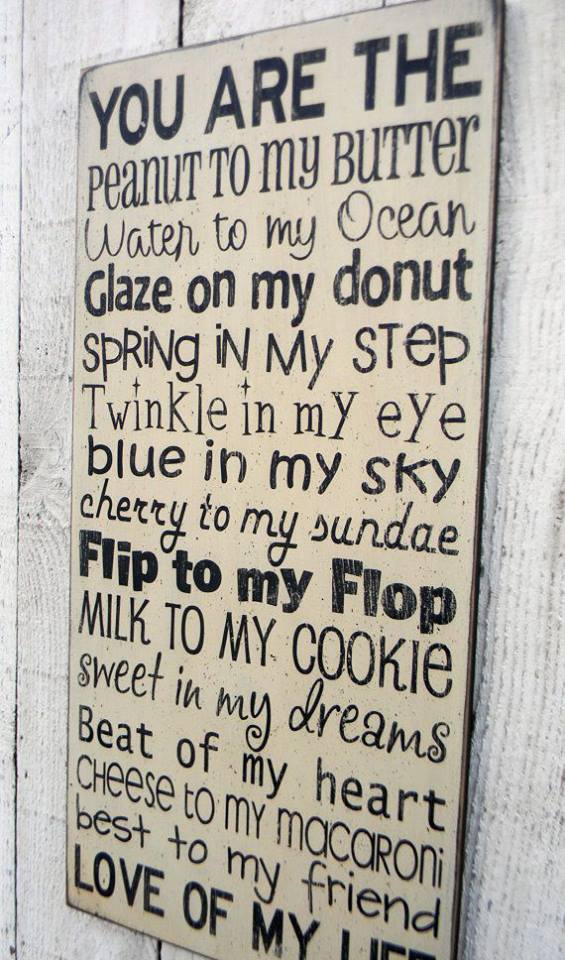 YOU ARE THE
PeaNUT TO my BUTTer
Water to my Ocean
Glaze on my donut
SPRiNg iN My STep
Twinkle in my eye
blue in my sky
cherry to my sundae
Flip to my Flop
MILK TO MY COOKIE
sweet in my dreams
Beat of my heart
CHeese to my macaroni
best to my friend
LOVE OF MY LIFE